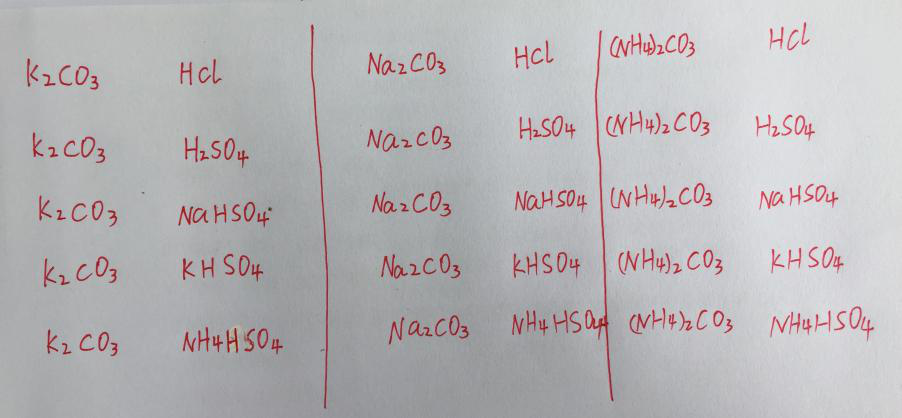 K₂CO₃ HCl
K₂CO₃ H₂SO₄
K₂CO₃ NaHSO₄
K₂CO₃ KHSO₄
K₂CO₃ NH₄HSO₄
Na₂CO₃ HCl
Na₂CO₃ H₂SO₄
Na₂CO₃ NaHSO₄
Na₂CO₃ KHSO₄
Na₂CO₃ NH₄HSO₄
(NH₄)₂CO₃ HCl
(NH₄)₂CO₃ H₂SO₄
(NH₄)₂CO₃ NaHSO₄
(NH₄)₂CO₃ KHSO₄
(NH₄)₂CO₃ NH₄HSO₄